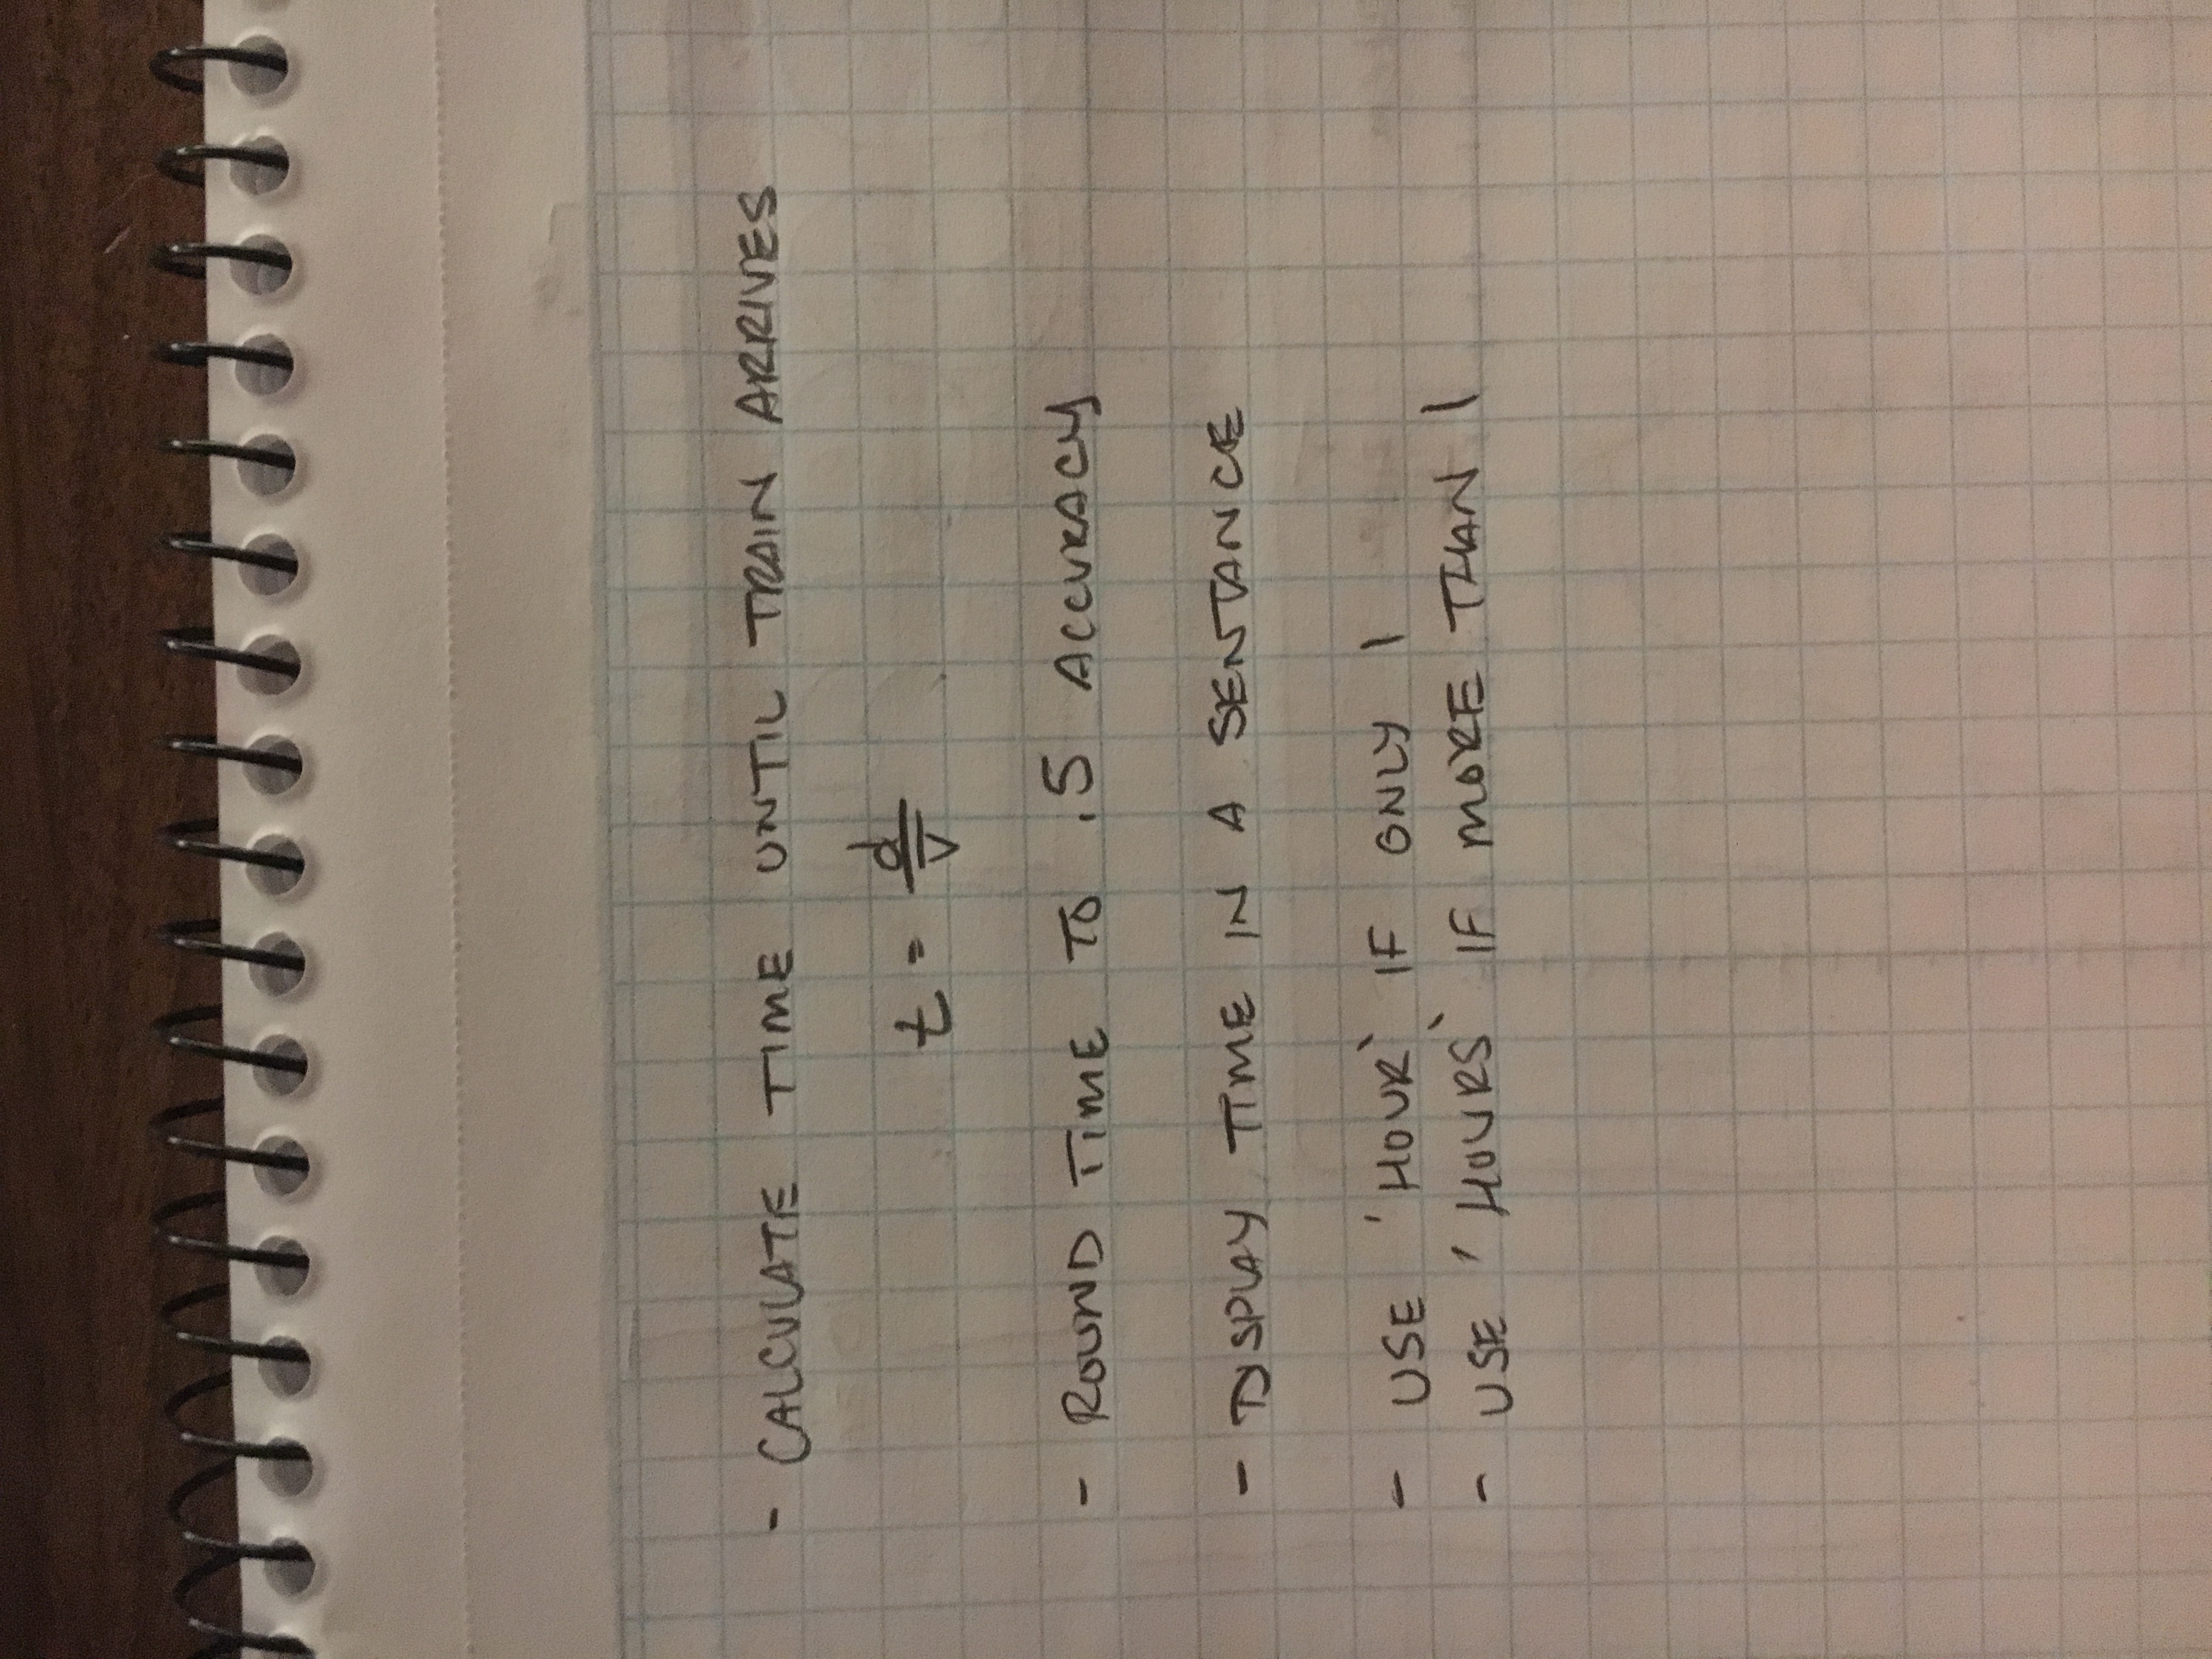 - CALCULATE TIME UNTIL TRAIN ARRIVES
t = d / v̅
- ROUND TIME TO .5 ACCURACY
- DISPLAY TIME IN A SENTANCE
- USE 'HOUR` IF ONLY 1
- USE 'HOURS` IF MORE THAN 1